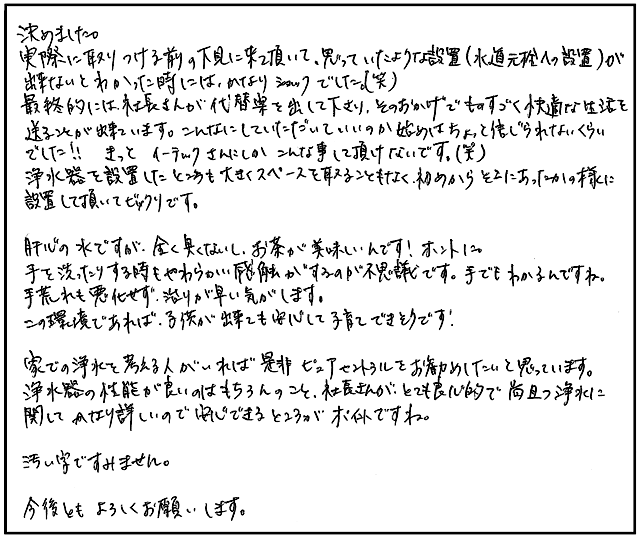 決めました。
実際に取りつける前の下見に来て頂いて、思っていたような設置(水道元栓への設置)が
出来ないとわかった時には、かなりショックでした。(笑)
最終的には社長さんが代替案を出して下さり、そのおかげでものすごく快適な生活を
送ることが出来ています。こんなにしていただいていいのか始めはちょっと信じられないくらい
でした!! きっと イーテックさんにしか こんな事して頂けないです。(笑)
浄水器を設置したところも大きくスペースを取ることもなく、初めからそこにあったかの様に
設置して頂いてビックリです。
肝心の水ですが、全く臭くないし、お茶が美味いんです! ホントに。
手を洗ったりする時もやわらかい感触がするのが不思議です。手でもわかるんですね。
手荒れも悪化せず、治りが早い気がします。
この環境であれば、子供が出来ても安心して子育てできそうです!
家での浄水を考える人がいれば是非ピュアセントラルをお勧めしたいと思っています。
浄水器の性能が良いのはもちろんのこと、社長さんが、とても良心的で尚且つ浄水に
関してかなり詳しいので安心できるところがポイントですね。
汚い字ですみません。
今後とも よろしくお願いします。